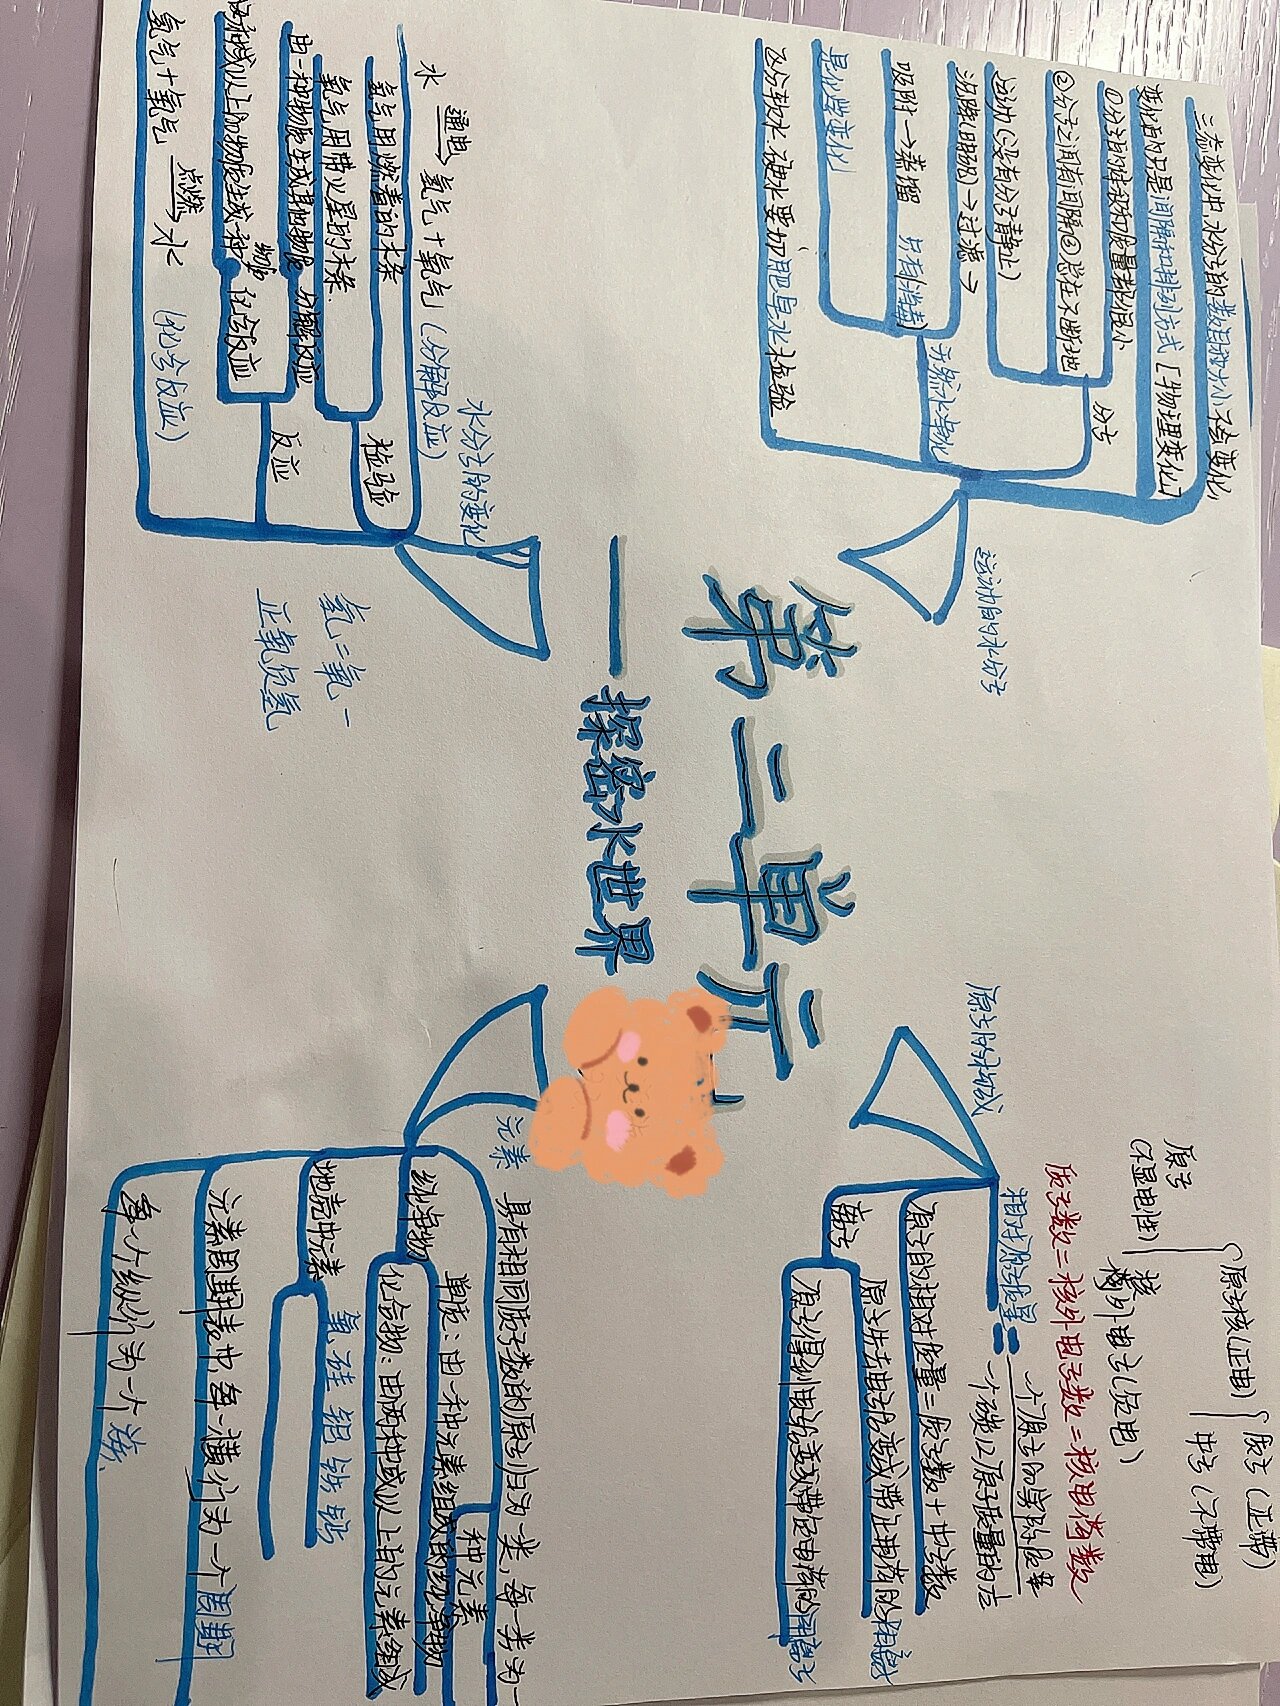 第二单元
—探密水世界
运动的水分子
三态变化中,水分子的数目和大小不会变化,
变化的只是间隔和排列方式[物理变化]
分子
①分子的体积和质量都很小
②分子之间有间隔③总在不断地
运动(没有分子静止)
天然水净化
沉降(明矾)→过滤→
吸附→蒸馏
只有消毒
是化学变化
区分软水、硬水要切肥皂水检验
水分子的变化
水 通电→ 氢气+氧气(分解反应)
检验
氢气用燃着的木条
氧气用带火星的木条.
反应
由一种物质生成其他物质 分解反应
两种或以上的物质生成一种物质 化合反应
氢气+氧气 点燃→ 水 (化合反应)
氢二氧一
正氧负氢
原子的构成
原子
(不显电性)
原子核(正电)
质子(正带)
中子(不带电)
核外电子(负电)
质子数=核外电子数=核电荷数
相对原子质量=
一个原子的实际质量
一个碳12原子质量的1/12
原子的相对质量=质子数+中子数
离子
原子失去电子变成带正电荷的阳离子
原子得到电子变成带负电荷的阴离子
元素
具有相同质子数的原子归为一类,每一类为一
种元素
纯净物
单质:由一种元素组成的纯净物
化合物:由两种或以上的元素组成
地壳中元素
氧硅铝铁钙
元素周期表中,每一横行为一个周期
每个纵行为一个族.